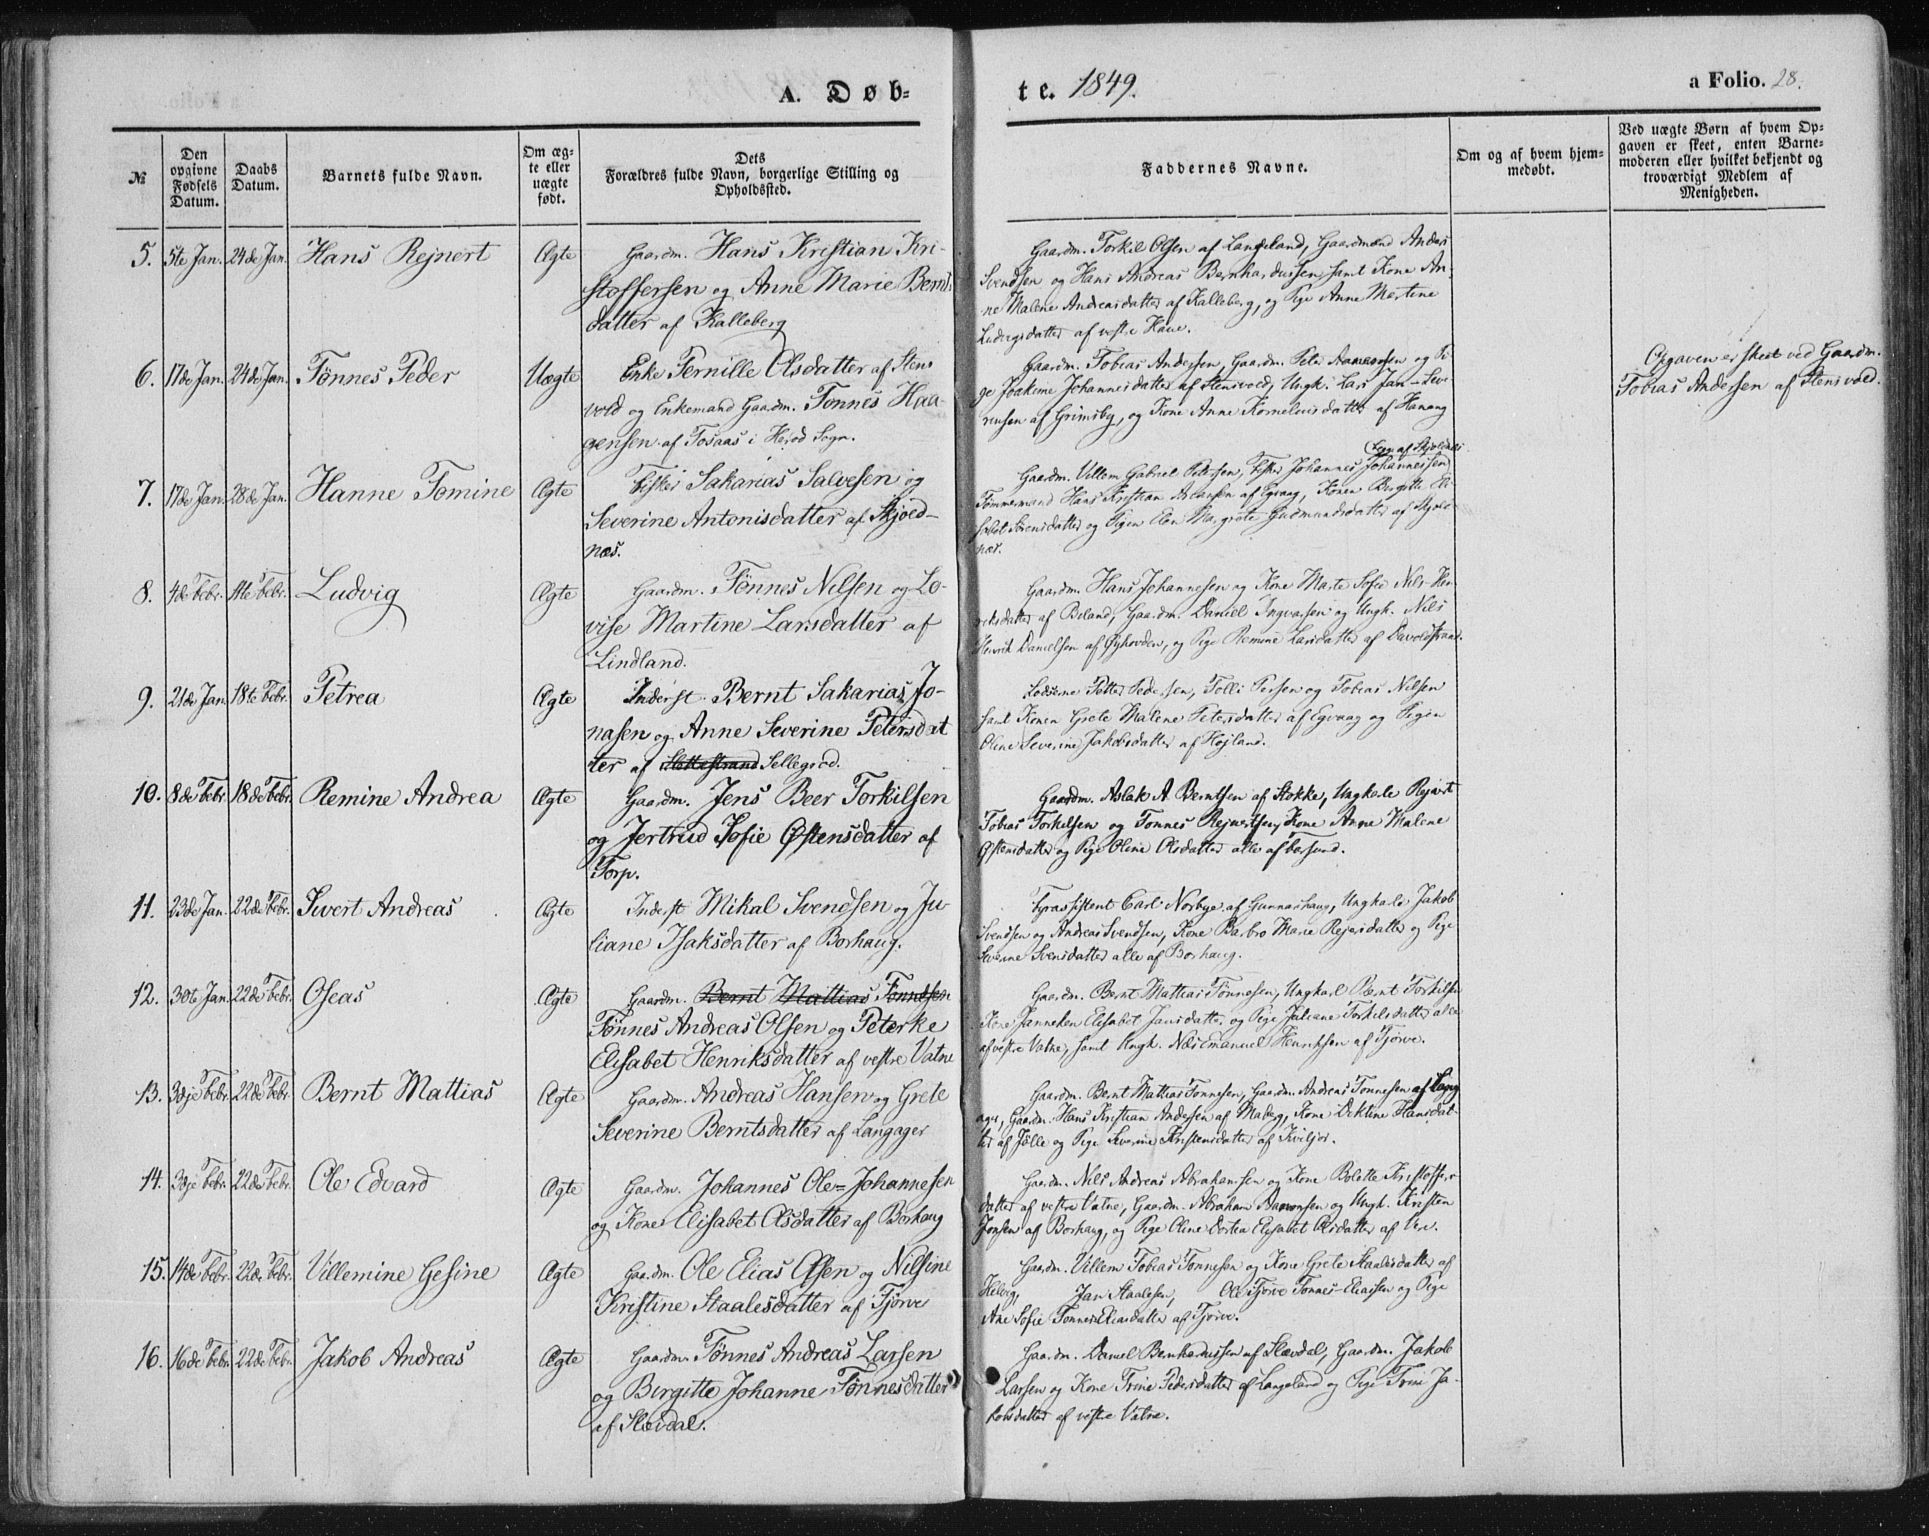 A. Døb=
te. 1849.
a Folio. 28.
№
Den opgivne Fødsels Datum.
Daabs Datum.
Barnets fulde Navn.
Om ægte eller uægte født.
Dets
Forældres fulde Navn, borgerlige Stilling og
Opholdssted.
Faddernes Navne.
Om og af hvem hjem=
medøbt.
Ved uægte Børn af hvem Op=
gaven er skeet, enten Barne=
moderen eller hvilket bekjendt og
troværdigt Medlem af
Menigheden.
5. 5te Jan. 24de Jan. Hans Rejnert Ægte Gaardm. Hans Kristian Kri-
stoffersen og Anne Marie Bernts
datter af Kalleberg
Gaardm. Torkil Olsen af Langeland, Gaardmænd Anders
Svendsen og Hans Andreas Bernhardussen samt Kone An-
ne Malene Andreasdatter af Kalleberg, og Pige Anne Martine
Ludvigsdatter af vestre Haue.
6. 17de Jan. 24de Jan. Tønnes Peder Uægte Enke Pernille Olsdatter af Stens
vold og Enkemand Gaardm. Tønnes Haa-
gensen af Tosaas i Herod Sogn.
Gaardm. Tobias Andersen, Gaardm. Peter Aanensen og Pi
ge Joakime Johannesdatter af Stensvold, Ungk. Lars Jan-Seve
rensen af Grimsby, og Kone Anne Korneliusdatter af Hanang
Opgaven er skeet ved Gaardm.
Tobias Andersen af Stensvold.
7. 17de Jan. 28de Jan. Hanne Tomine Ægte Fisker Sakarias Salvesen og
Severine Antonisdatter af Skjold-
næs.
Gaardm. Villem Gabriel Petersen, Fisker Johannes Johannessen
Tømmermand Hans Kristian Aslaksen af Egvaag, Konen Birgitte Eli
sabet Sørensdatter og Pigen Elen Margrete Gudmundsdatter af Skjold
næs.
8. 4de Febr. 11te Febr. Ludvig Ægte Gaardm. Tønnes Nilsen og Lo-
vise Martine Larsdatter af
Lindland.
Gaardm. Hans Johannesen og Kone Marte Sofie Nils-Hen
riksdatter af Boland, Gaardm. Daniel Ingvarsen og Ungk. Nils
Henrik Danielsen af Øyhovden, og Pige Remine Larsdatter af Davoldstrand.
9. 21de Jan. 18te Febr. Petrea Ægte Inderst Bernt Sakarias Jo-
nasen og Anne Severine Petersdat
ter af Slettestrand Sellegrod.
Lodserne Petter Pedersen, Tolli Persen og Tobias Nilsen
samt Konen Grete Malene Petersdatter af Egvaag og Pigen
Oline Severine Jakobsdatter af Højland.
10. 8de Febr. 18de Febr. Remine Andrea Ægte Gaardm. Jens Beer Torkilsen
og Jertrud Sofie Østensdatter af
Torp.
Gaardm. Aslak A Berntsen af Stokke, Ungkarle Rejnert
Tobias Torkelsen og Tønnes Rejnertsen, Kone Anne Malene
Østensdatter og Pige Oline Olsdatter alle af Farsund.
11. 23de Jan. 22de Febr. Sivert Andreas Ægte Inderst Mikal Svendsen og Ju-
liane Isaksdatter af Borhaug.
Fyrassistent Carl Norbye af Gunnarshaug, Ungkarle Jakob
Svendsen og Andreas Svendsen, Kone Barbro Marie Rejersdatter og Pige
Severine Svensdatter alle af Borhaug.
12. 30te Jan. 22de Febr. Oseas Ægte Gaardm. Bernt Mattias Tønnesen
Tønnes Andreas Olsen og Peterke
Elisabet Henriksdatter af vestre Vatne
Gaardm. Bernt Mathias Tønnesen, Ungkarl Bernt Torkilsen
Kone Janneken Elisabet Jansdatter og Pige Juliane Torkilsdatter alle
af vestre Vatne, samt Ungk. Nils Emanuel Henriksen af Tjørve.
13. 3dje Febr. 22de Febr. Bernt Mattias Ægte Gaardm. Andreas Hansen og Grete
Severine Berntsdatter af Langager
Gaardm. Bernt Mathias Tønnesen, Gaardm. Andreas Tønnesen af Lang
ager, Gaardm. Hans Kristian Andersen af Maberg, Kone Dektine Hansdat
ter af Jølle og Pige Severine Kristensdatter af Kviljor.
14. 3dje Febr. 22de Febr. Ole Edvard Ægte Gaardm. Johannes Ole=Johannesen
og Kone Elisabet Olsdatter af Borhaug
Gaardm. Nils Andreas Abrahamsen og Kone Bolette Kristoffers
datter af vestre Vatne, Gaardm. Abraham Aanonsen og Ungk. Kristen
Jonsen af Borhaug, og Pige Oline Dortea Elisabet Olsdatter af Ore.
15. 14de Febr. 22de Febr. Villemine Gesine Ægte Gaardm. Ole Elias Olsen og Nilsine
Kristine Staalesdatter af Tjørve
Gaardm. Villem Tobias Tønnesen og Kone Grete Staalesdatter af
Helvig, Jan Staalesen, Ole Tjørve Tønnes-Eliassen og Pige
Ane Sofie Tønnes Eliasdatter af Tjørve.
16. 16de Febr. 22de Febr. Jakob Andreas Ægte Gaardm. Tønnes Andreas Larsen
og Birgitte Johanne Tønnesdatter
af Slævdal.
Gaardm. Daniel Bernhardussen af Slævdal, Gaardm. Jakob
Larsen og Kone Trine Pedersdatter af Langeland og Pige Trine Ja-
kobsdatter af vestre Vatne.